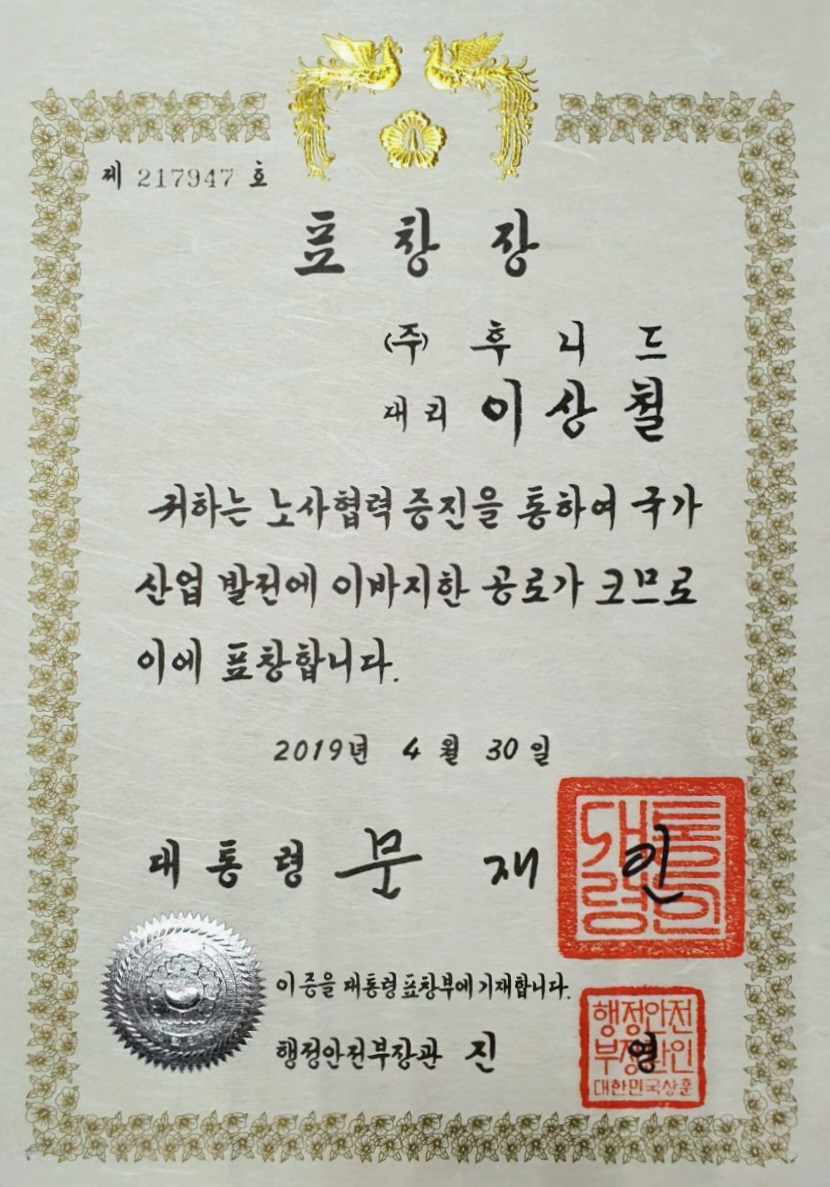 제 217947 호
표 창 장
(주) 후 니 드
대리 이 상 철
귀하는 노사협력 증진을 통하여 국가
산업 발전에 이바지한 공로가 크므로
이에 표창합니다.
2019년 4 월 30 일
대 통 령 문 재 인
대통령의인
이 증을 대통령표창부에 기재합니다.
행정안전부장관 진 영
행정안전
부장관인
대한민국상훈